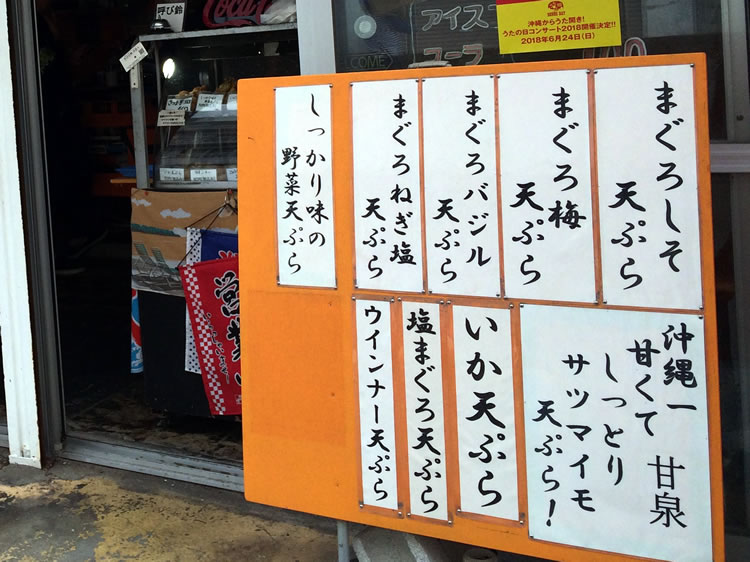 まぐろしそ
天ぷら
まぐろ梅
天ぷら
まぐろバジル
天ぷら
まぐろねぎ塩
天ぷら
しっかり味の
野菜天ぷら
沖縄一
甘くて 甘泉
しっとり
サツマイモ
天ぷら!
いか天ぷら
塩まぐろ天ぷら
ウインナー天ぷら
沖縄からうた開き!
うたの日コンサート2018開催決定!!
2018年6月24日(日)
アイス
呼び鈴
COME
営業